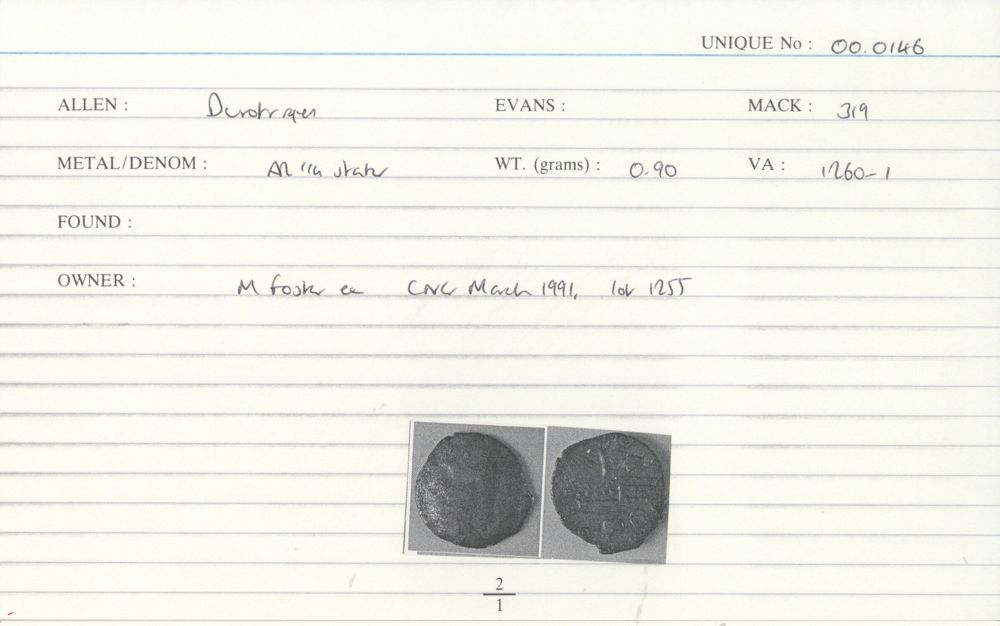 UNIQUE No : 00.0146
ALLEN : Durotriges EVANS : MACK : 319
METAL/DENOM : AR 1/4 stater WT. (grams) : 0.90 VA : 1260-1
FOUND :
OWNER : M Foster ex CNG March 1991, lot 1255
2
1